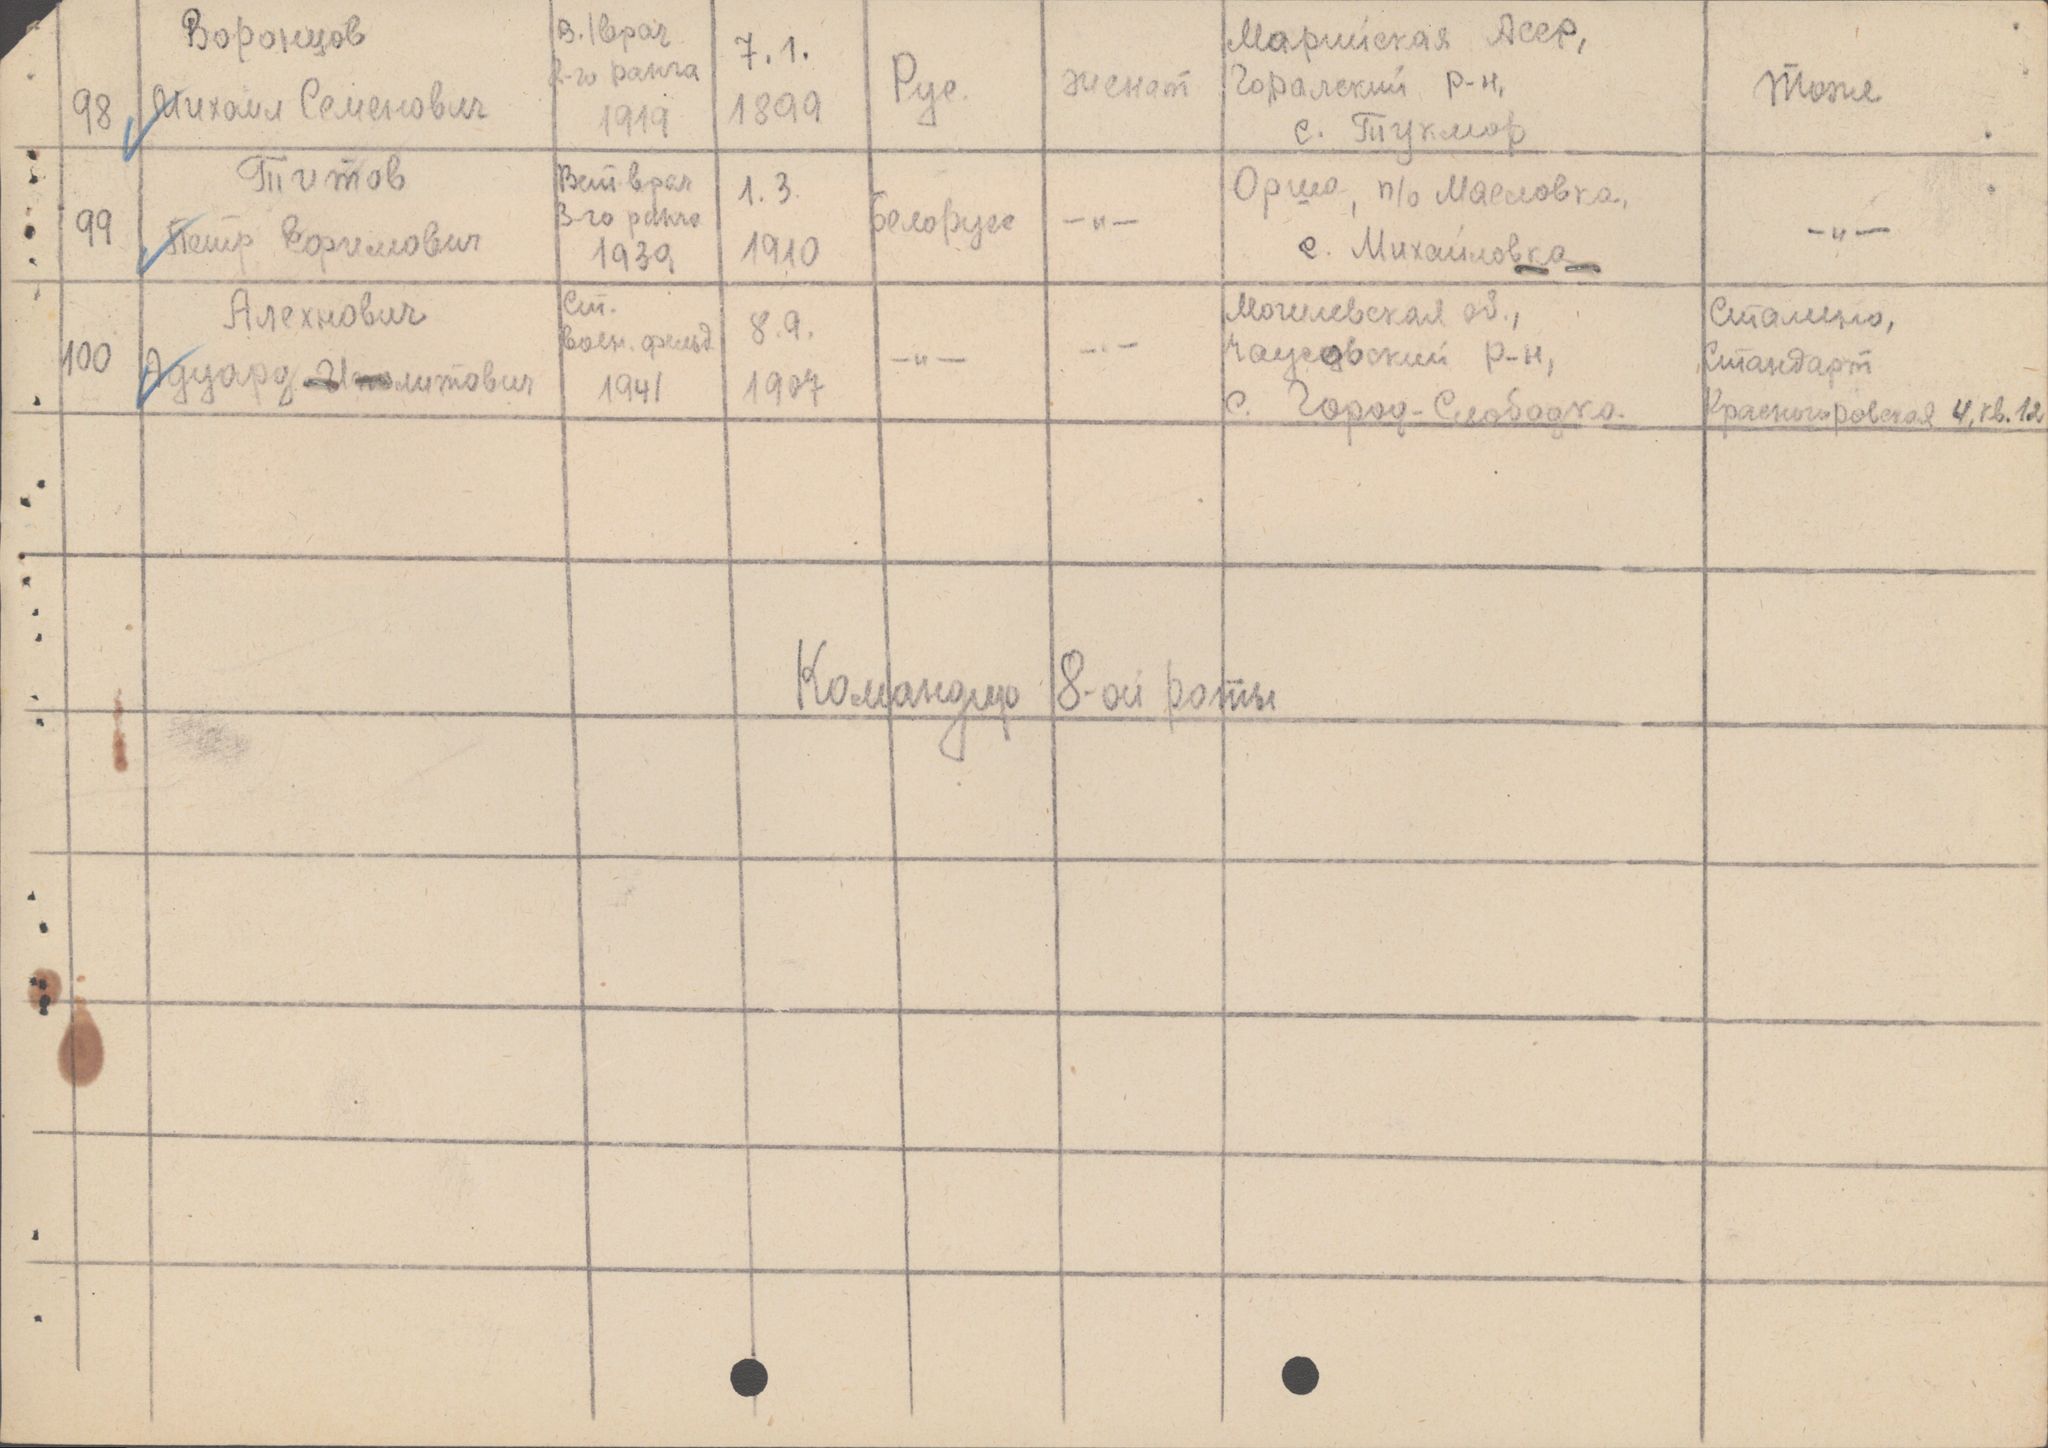 98
Воронцов
Михаил Семенович
В./врач
2-го ранга
1919
7.1.
1899
Рус.
женат
Марийская Асср,
Горалский р-н,
с. Тукмор
Тоже
99
Титов
Петр Ефимович
Вет.врач
3-го ранга
1939
1.3.
1910
белорусс
-"-
Орша, п/о Масловка,
с. Михайловка
-"-
100
Алехнович
Эдуард Иполитович
Ст.
воен. фельд
1941
8.9.
1907
-"-
-"-
Могилевская об.,
Чаусовский р-н,
с. Город-Слободка.
Сталино,
Стандарт
Красногоровская 4, кв. 12
Командир 8-ой роты